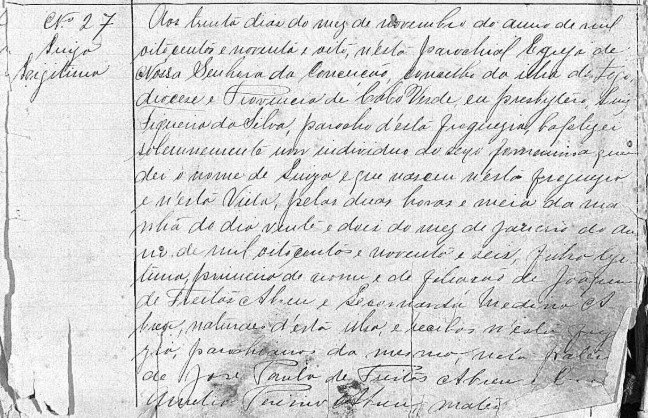 Nº 27
Luiza
Legitima
Aos trinta dias do mez de novembro do anno de mil
oitocentos e noventa e oito, n'esta parochial Egreja de
Nossa Senhora da Conceição, concelho da ilha do Fogo,
diocese e Provincia de Cabo Verde, eu presbytero, Luiz
Figueira da Silva, parocho d'esta freguezia, baptizei
solemnemente um individuo do sexo femenino a que
dei o nome de Luiza e que nasceu n'esta freguezia
e n'esta Villa, pelas duas horas e meia da ma
nhã do dia vinte e dois do mez de janeiro do an
no de mil oitocentos e noventa e seis, filha legi
tima, primeira do nome e de filiação de Joaquim
de Freitas Abreu e Medina A
breu, naturaes d'esta ilha e recibos n'esta fre
zia, parochianos da mesma, neta
de José de Freitas Abreu e
Amelia Abreu, mater